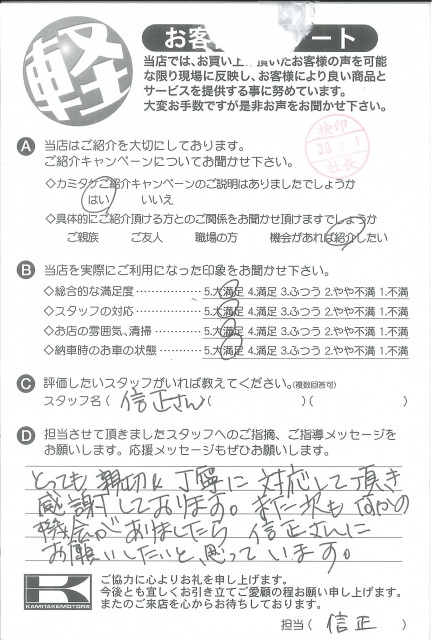 軽
お客 ート
当店では、お買い上げ頂いたお客様の声を可能
な限り現場に反映し、お客様により良い商品と
サービスを提供する事に努めています。
大変お手数ですが是非お声をお聞かせ下さい。
検印
30.
社長
A 当店はご紹介を大切にしております。
ご紹介キャンペーンについてお聞かせ下さい。
◇カミタケご紹介キャンペーンのご説明はありましたでしょうか
はい いいえ
◇具体的にご紹介頂ける方とのご関係をお聞かせ頂けますでしょうか
ご親族 ご友人 職場の方 機会があれば紹介したい
B 当店を実際にご利用になった印象をお聞かせ下さい。
◇総合的な満足度 ……………… 5.大満足 4.満足 3.ふつう 2.やや不満 1.不満
◇スタッフの対応 ……………… 5.大満足 4.満足 3.ふつう 2.やや不満 1.不満
◇お店の雰囲気、清掃 ………… 5.大満足 4.満足 3.ふつう 2.やや不満 1.不満
◇納車時のお車の状態 ………… 5.大満足 4.満足 3.ふつう 2.やや不満 1.不満
C 評価したいスタッフがいれば教えてください。(複数回答可)
スタッフ名 ( 信正さん )( )( )
D 担当させて頂きましたスタッフへのご指摘、ご指導メッセージを
お願いします。応援メッセージもぜひお願いします。
とっても親切に丁寧に対応して頂き
感謝しております。また次も何かの
機会がありましたら信正さんに
お願いしたいと思っています。
K
KAMITAKEMOTORS
ご協力に心よりお礼を申し上げます。
今後とも宜しくお引き立てご愛顧の程お願い申し上げます。
またのご来店を心からお待ちしております。
担当 ( 信正 )